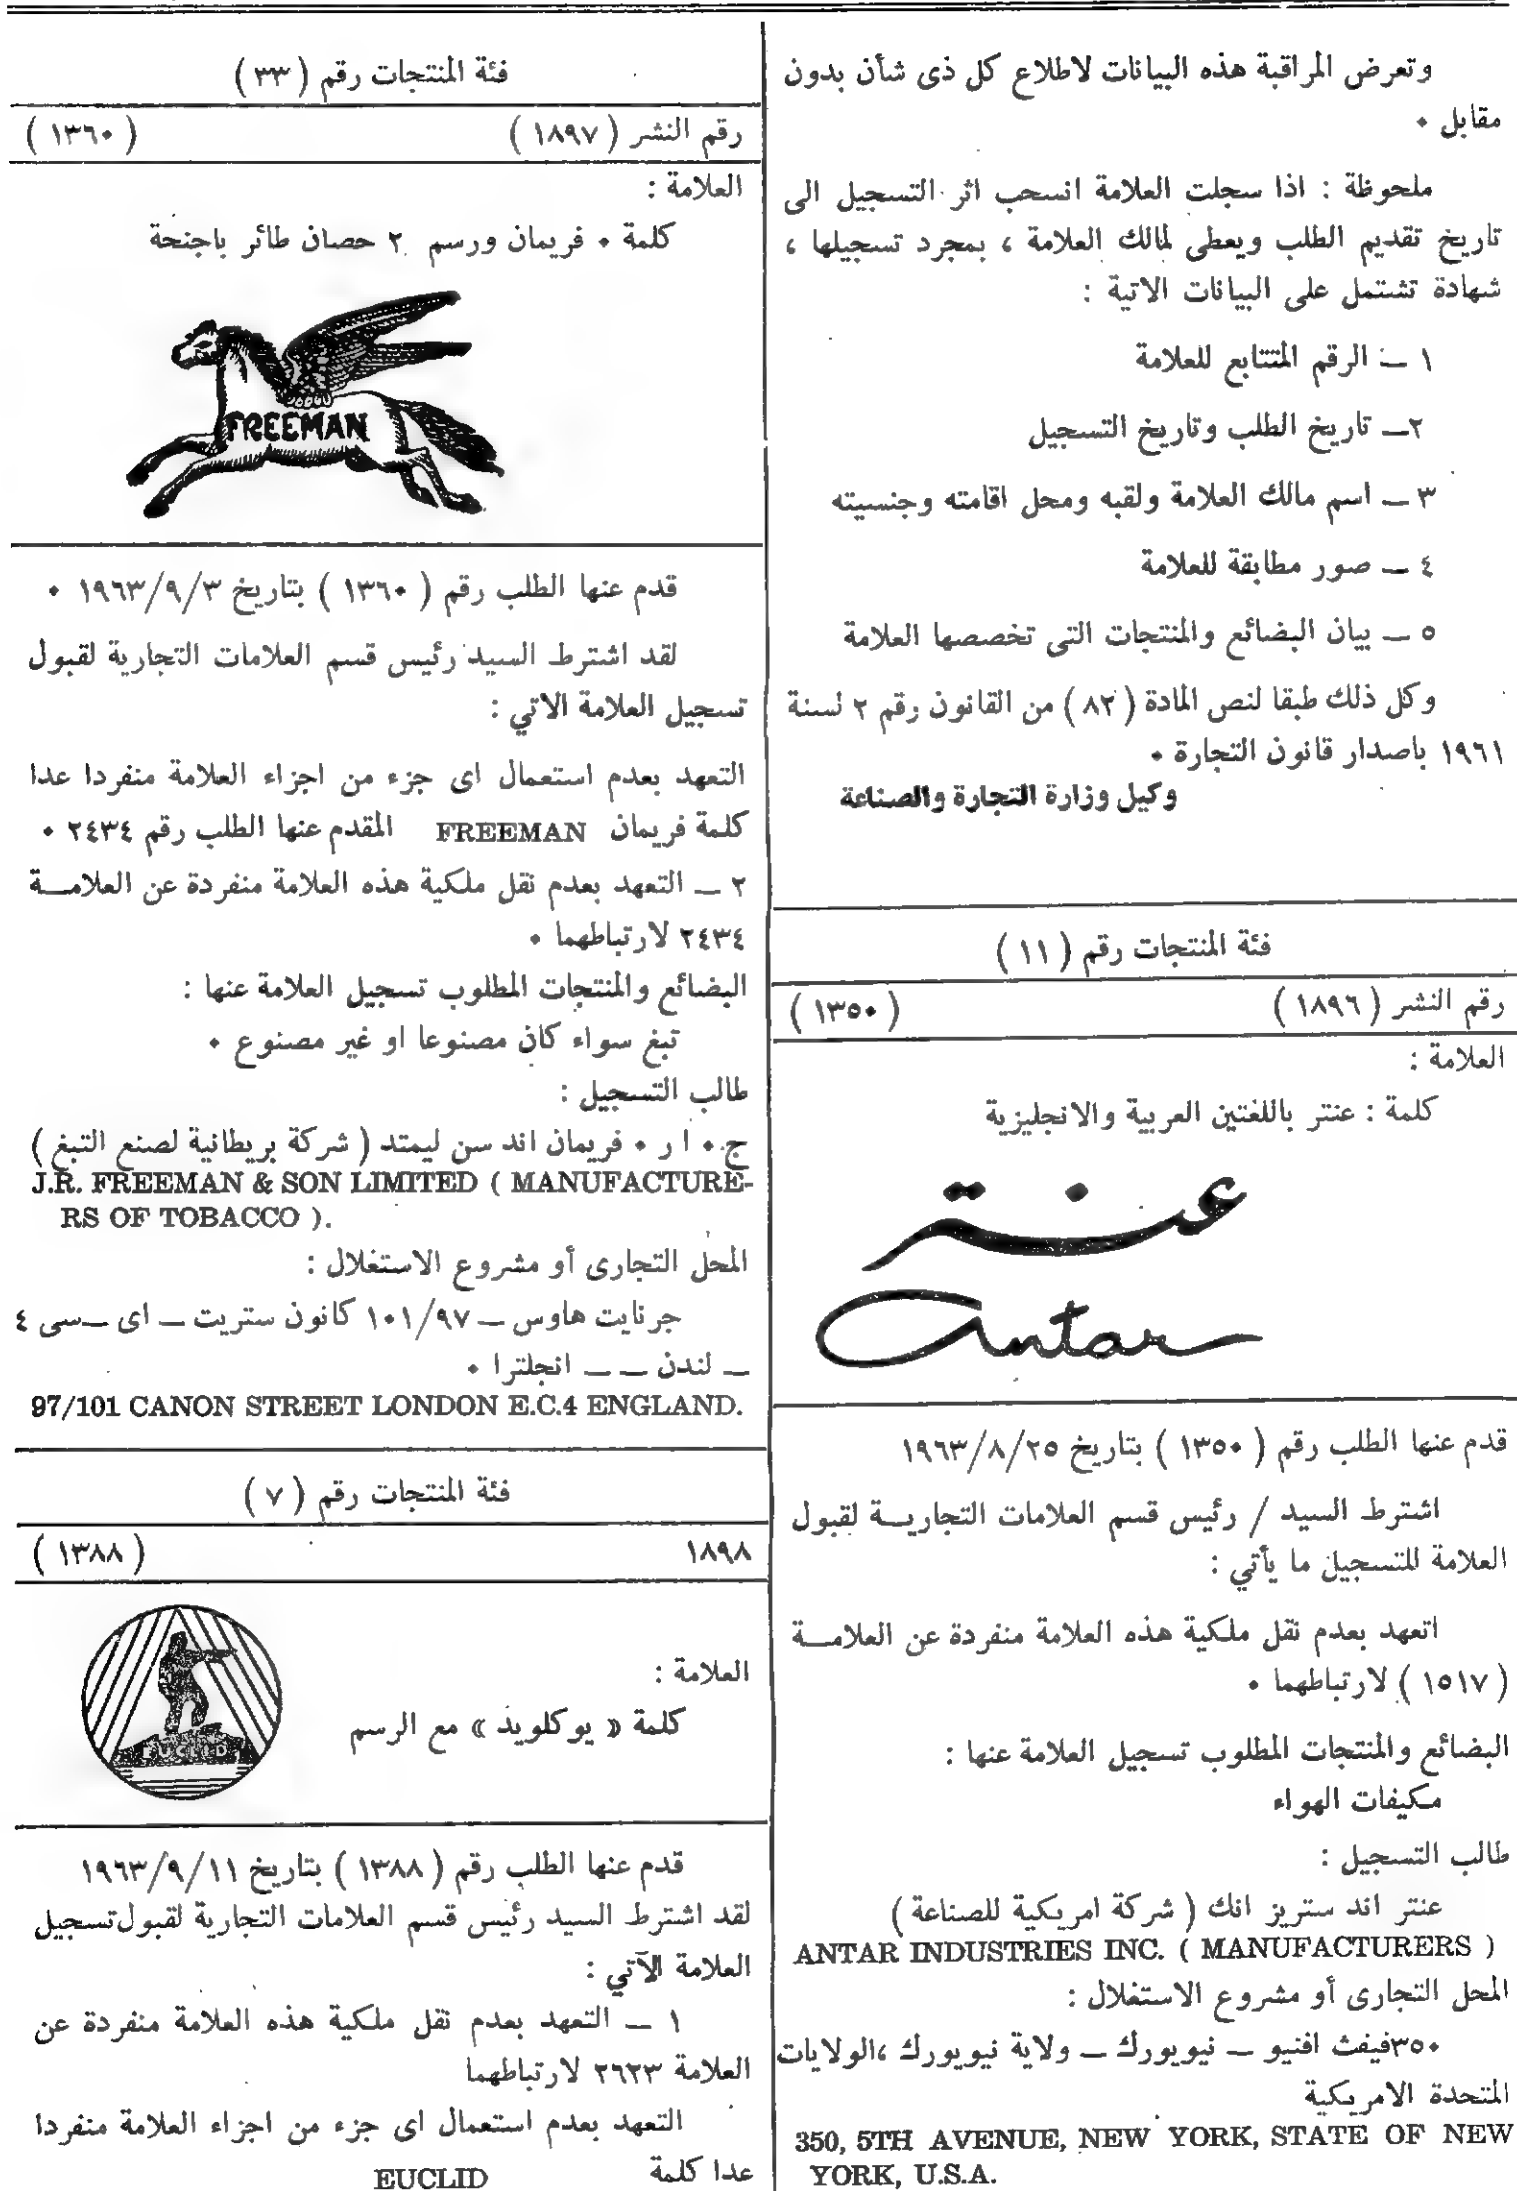 وتعرض المراقبة هذه البيانات لاطلاع كل ذى شأن بدون
مقابل ٠
ملحوظة : اذا سجلت العلامة انسحب اثر التسجيل الى
تاريخ تقديم الطلب ويعطى لمالك العلامة ، بمجرد تسجيلها ،
شهادة تشتمل على البيانات الاتية :
١ ـ الرقم المتتابع للعلامة
٢ـ تاريخ الطلب وتاريخ التسجيل
٣ ـ اسم مالك العلامة ولقبه ومحل اقامته وجنسيته
٤ ـ صور مطابقة للعلامة
٥ ـ بيان البضائع والمنتجات التى تخصصها العلامة
وكل ذلك طبقا لنص المادة ( ٨٢ ) من القانون رقم ٢ لسنة
١٩٦١ باصدار قانون التجارة ٠
وكيل وزارة التجارة والصناعة
فئة المنتجات رقم ( ١١ )
رقم النشر ( ١٨٩٦ ) ( ١٣٥٠ )
العلامة :
كلمة : عنتر باللغتين العربية والانجليزية
عنتر
antar
قدم عنها الطلب رقم ( ١٣٥٠ ) بتاريخ ١٩٦٣/٨/٢٥
اشترط السيد / رئيس قسم العلامات التجاريـة لقبول
العلامة للتسجيل ما يأتي :
اتعهد بعدم نقل ملكية هذه العلامة منفردة عن العلامـة
( ١٥١٧ ) لارتباطهما ٠
البضائع والمنتجات المطلوب تسجيل العلامة عنها :
مكيفات الهواء
طالب التسجيل :
عنتر اند ستريز انك ( شركة امريكية للصناعة )
ANTAR INDUSTRIES INC. ( MANUFACTURERS )
المحل التجارى أو مشروع الاستغلال :
٣٥٠فيفث افنيو ـ نيويورك ـ ولاية نيويورك ،الولايات
المتحدة الامريكية
350, 5TH AVENUE, NEW YORK, STATE OF NEW
YORK, U.S.A.
فئة المنتجات رقم ( ٣٣ )
رقم النشر ( ١٨٩٧ ) ( ١٣٦٠ )
العلامة :
كلمة ٠ فريمان ورسم ٢ حصان طائر باجنحة
FREEMAN
قدم عنها الطلب رقم ( ١٣٦٠ ) بتاريخ ١٩٦٣/٩/٣ ٠
لقد اشترط السيد رئيس قسم العلامات التجارية لقبول
تسجيل العلامة الاتي :
التعهد بعدم استعمال اى جزء من اجزاء العلامة منفردا عدا
كلمة فريمان FREEMAN المقدم عنها الطلب رقم ٢٤٣٤ ٠
٢ ـ التعهد بعدم نقل ملكية هذه العلامة منفردة عن العلامـة
٢٤٣٤ لارتباطهما ٠
البضائع والمنتجات المطلوب تسجيل العلامة عنها :
تبغ سواء كان مصنوعا او غير مصنوع ٠
طالب التسجيل :
ج ٠ ا ر ٠ فريمان اند سن ليمتد ( شركة بريطانية لصنع التبغ )
J.R. FREEMAN & SON LIMITED ( MANUFACTURE-
RS OF TOBACCO ).
المحل التجارى أو مشروع الاستغلال :
جرنايت هاوس ـ ١٠١/٩٧ كانون ستريت ـ اى ـسى ٤
ـ لندن ـ ـ انجلترا ٠
97/101 CANON STREET LONDON E.C.4 ENGLAND.
فئة المنتجات رقم ( ٧ )
١٨٩٨ ( ١٣٨٨ )
العلامة :
كلمة « يوكلويد » مع الرسم
EUCLID
قدم عنها الطلب رقم ( ١٣٨٨ ) بتاريخ ١٩٦٣/٩/١١
لقد اشترط السيد رئيس قسم العلامات التجارية لقبول تسجيل
العلامة الآتي :
١ ـ التعهد بعدم نقل ملكية هذه العلامة منفردة عن
العلامة ٢٦٢٣ لارتباطهما
التعهد بعدم استعمال اى جزء من اجزاء العلامة منفردا
عدا كلمة EUCLID